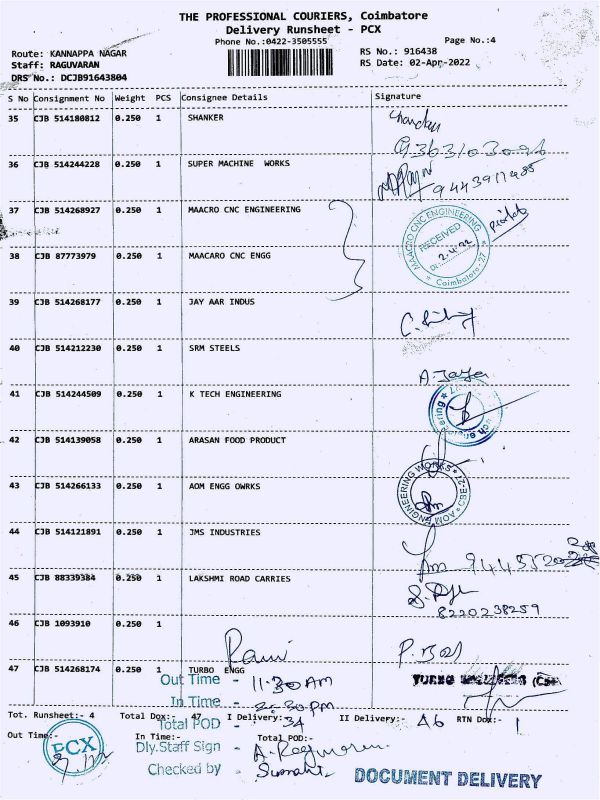 THE PROFESSIONAL COURIERS, Coimbatore
Delivery Runsheet - PCX
Phone No.:0422-3505555
Page No.:4
Route: KANNAPPA NAGAR
RS No.: 916438
Staff: RAGUVARAN
RS Date: 02-Apr-2022
DRS No.: DCJB91643804
S No Consignment No Weight PCS Consignee Details Signature
35 CJB 514180812 0.250 1 SHANKER
36 CJB 514244228 0.250 1 SUPER MACHINE WORKS
37 CJB 514268927 0.250 1 MAACRO CNC ENGINEERING
MAACRO CNC ENGINEERING
RECEIVED
2.4.22
Coimbatore-27
38 CJB 87773979 0.250 1 MAACARO CNC ENGG
39 CJB 514268177 0.250 1 JAY AAR INDUS
40 CJB 514212230 0.250 1 SRM STEELS
A. Jaya
41 CJB 514244509 0.250 1 K TECH ENGINEERING
42 CJB 514139058 0.250 1 ARASAN FOOD PRODUCT
43 CJB 514266133 0.250 1 AOM ENGG OWRKS
AOM ENGINEERING WORKS
44 CJB 514121891 0.250 1 JMS INDUSTRIES
45 CJB 88339384 0.250 1 LAKSHMI ROAD CARRIES
8220238259
46 CJB 1093910 0.250 1
47 CJB 514268174 0.250 1 TURBO ENGG
Out Time - 11.30 AM
In Time - 2.30 PM
Tot. Runsheet:- 4 Total Dox:- 47 I Delivery:- II Delivery:- 46 RTN Dox:- 1
Total POD - 34
Out Time:- In Time:- Total POD:-
PCX
Dly.Staff Sign -
Checked by -
DOCUMENT DELIVERY